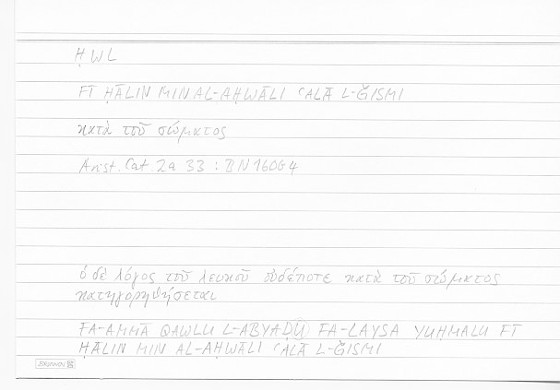 ḤWL
FĪ ḤĀLIN MIN AL-AḤWĀLI ʿALĀ L-ǦISMI
κατὰ τοῦ σώματος
Arist. Cat 2a 33 : BN 160G4
ὁ δὲ λόγος τοῦ λευκοῦ οὐδέποτε κατὰ τοῦ σώματος
κατηγορηθήσεται
FA-AMMĀ QAWLU L-ABYAḌU FA-LAYSA YUḤMALU FĪ
ḤĀLIN MIN AL-AḤWĀLI ʿALĀ L-ǦISMI